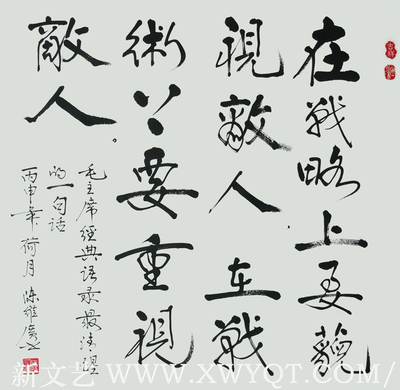 在戰略上要藐
視敵人在戰
術上要重視
敵人。
毛主席經典語录最清醒
的一句话
丙申年荷月
新文艺 WWW.XWYQT.COM